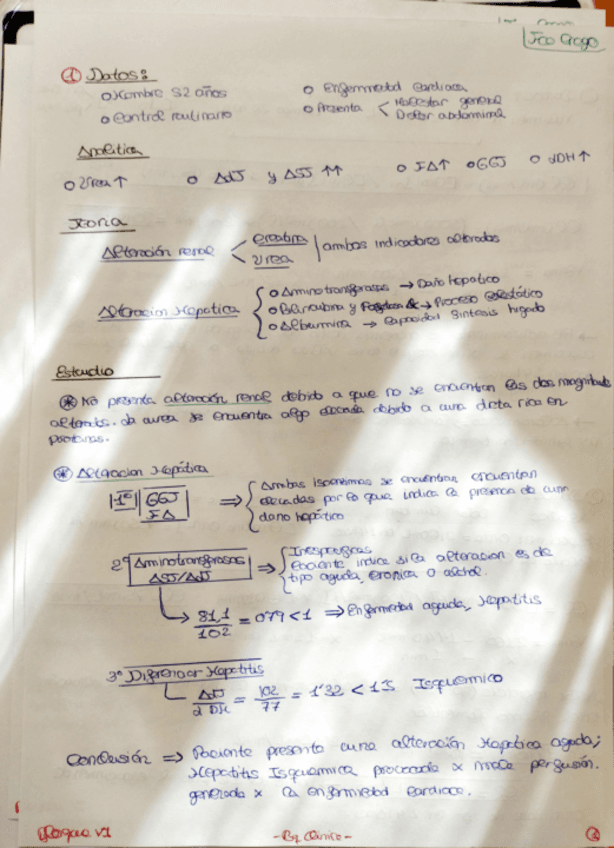 ① Datos:
○ Hombre 52 años
○ Enfermedad Cardiaca
○ Control rutinario
○ Presenta < Malestar general
Dolor abdominal
Analítica
○ Urea ↑ ○ ALT y AST ↑↑ ○ FA↑ ○ GGT ○ LDH ↑
Teoria
Alteración renal < Creatina
Urea
ambos indicadores alterados
Alteracion Hepatica
○ Aminotransferasas → Daño hepatico
○ Bilirrubina y → Proceso Colestático
○ Albumina → Capacidad Sintesis higado
Estudio
⊛ No presenta alteración renal debido a que no se encuentran las dos magnitudes
alteradas. La urea se encuentra algo elevada debido a una dieta rica en
proteinas.
⊛ Alteracion Hepática
1º GGT
FA
⇒ Ambas isoenzimas se encuentran encuentran
elevadas por lo que indica la presencia de un
daño hepático
2º Aminotransferasas
AST/ALT
⇒ Inespecificas
Cociente indica si la alteracion es de
tipo aguda, cronica o alcohol.
→ 81,1/102 = 0'79 < 1 ⇒ Enfermedad aguda, Hepatitis
3º Diferenciar Hepatitis
ALT/LDH = 102/77 = 1'32 < 1'5 Isquemico
Conclusión ⇒ Paciente presenta una alteración Hepatica aguda;
Hepatitis Isquemica provocada x mala perfusión.
generada x la enfermedad Cardiaca.
- By Clinic -